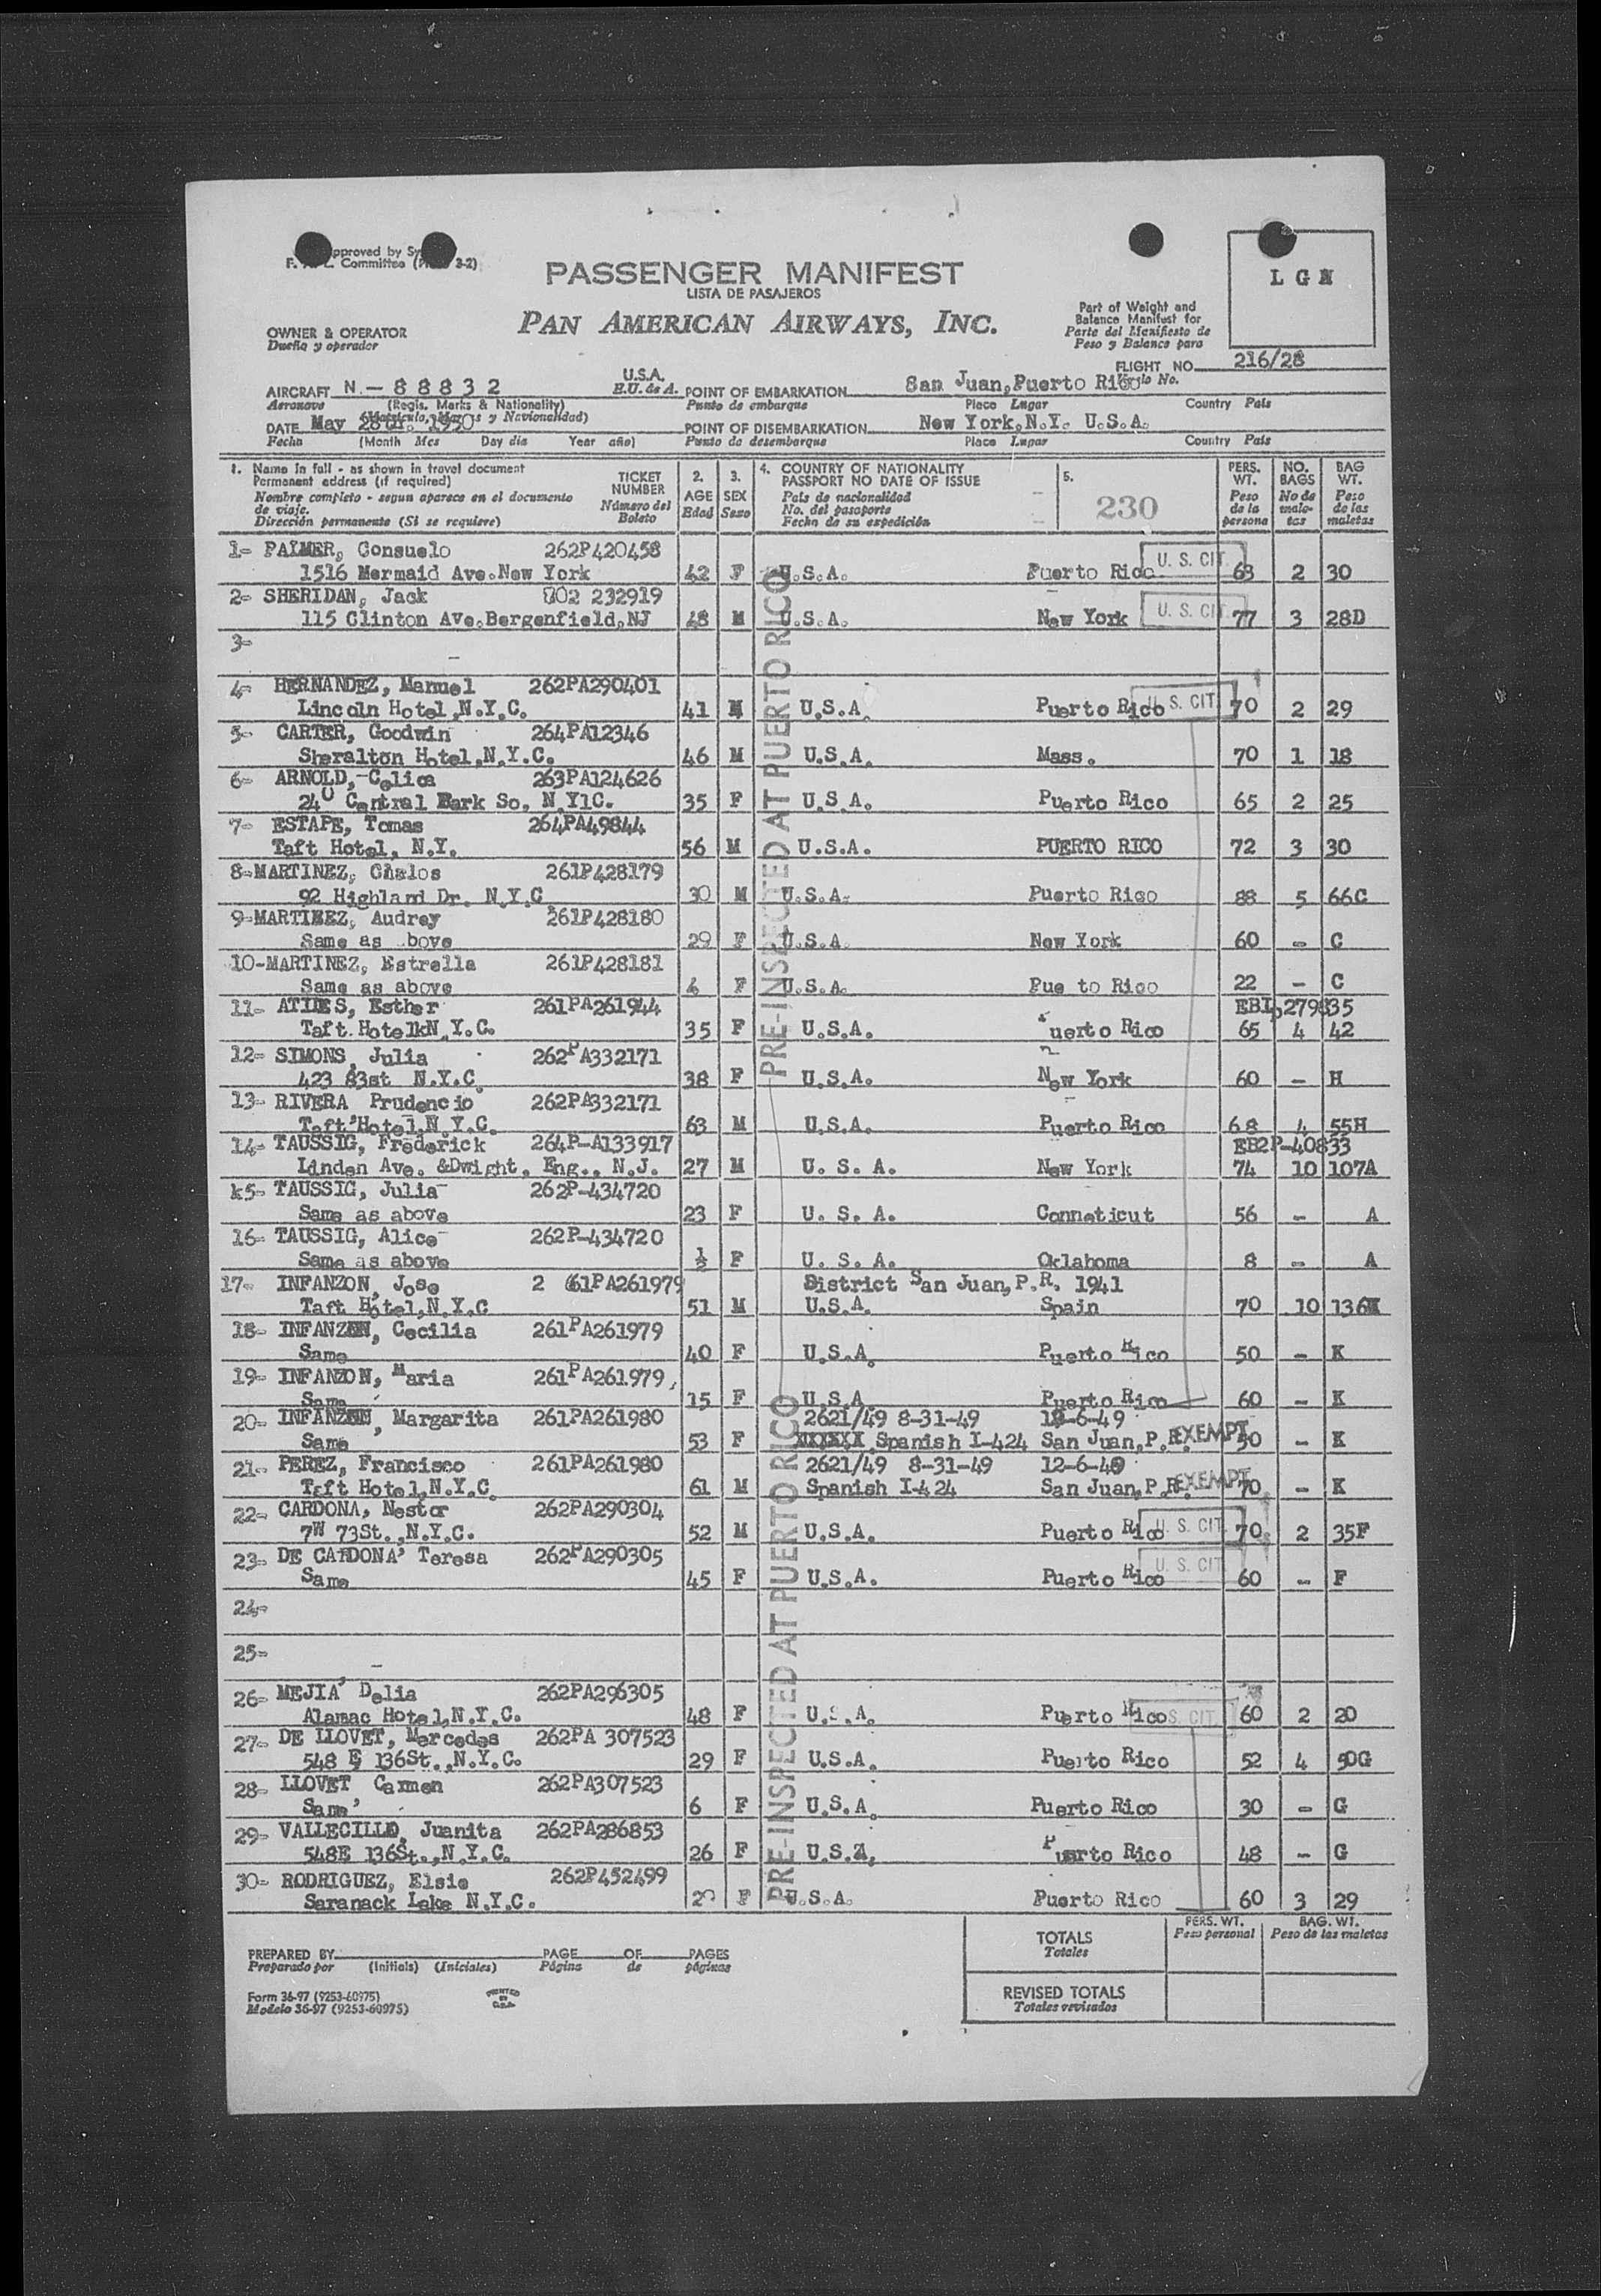 pproved by Sy
F. A. L. Committee 3-2)
PASSENGER MANIFEST
LISTA DE PASAJEROS
PAN AMERICAN AIRWAYS, INC.
L G N
Part of Weight and
Balance Manifest for
Parte del Manifiesto de
Peso y Balance para
OWNER & OPERATOR
Dueño y operador
FLIGHT NO. 216/28
Vuelo No.
AIRCRAFT N.-88832 U.S.A.
E.U. de A. POINT OF EMBARKATION San Juan,Puerto Rico
Aeronave (Regis. Marks & Nationality) Punto de embarque Place Lugar Country Pais
(Matricula, Marcas y Navionalidad)
DATE May 28th. 1950 POINT OF DISEMBARKATION New York,N.Y. U.S.A.
Fecha (Month Mes Day dia Year año) Punto de desembarque Place Lugar Country Pais
1. Name in full - as shown in travel document
Permanent address (if required)
Nombre completo - segun aparece en el documento
de viaje.
Dirección permanente (Si se requiere)
TICKET
NUMBER
Número del
Boleto
2.
AGE
Edad
3.
SEX
Sexo
4. COUNTRY OF NATIONALITY
PASSPORT NO DATE OF ISSUE
Pais de nacionalidad
No. del pasaporte
Fecha de su expedición
5.
230
PERS.
WT.
Peso
de la
persona
NO.
BAGS
No de
male-
tas
BAG
WT.
Peso
de las
maletas
1- PALMER, Consuelo 262P420458
1516 Mermaid Ave.New York 42 F U.S.A. Puerto Rico U. S. CIT. 63 2 30
2- SHERIDAN, Jack 702 232919
115 Clinton Ave.Bergenfield,NJ 48 M U.S.A. New York U. S. CIT. 77 3 28D
3-
4- HERNANDEZ, Manuel 262PA290401
Lincoln Hotel,N.Y.C. 41 M U.S.A. Puerto Rico U. S. CIT. 70 2 29
5- CARTER, Goodwin 264PA12346
Sheralton Hotel,N.Y.C. 46 M U.S.A. Mass. 70 1 18
6- ARNOLD,-Celica 263PA124626
240 Central Bark So. N.Y1C. 35 F U.S.A. Puerto Rico 65 2 25
7- ESTAPE, Tomas 264PA49844
Taft Hotel, N.Y. 56 M U.S.A. PUERTO RICO 72 3 30
8-MARTINEZ, Chalos 261P428179
92 Highland Dr. N.Y.C. 30 M U.S.A. Puerto Rico 88 5 66C
9-MARTINEZ, Audrey 261P428180
Same as bove 29 F U.S.A. New York 60 - C
10-MARTINEZ, Estrella 261P428181
Same as above 4 F U.S.A. Pue to Rico 22 - C
11- ATILES, Esther 261PA261944 279835
Taft.HotelkN.Y.C. 35 F U.S.A. Puerto Rico 65 4 42
12- SIMONS, Julia 262PA332171
423 83st N.Y.C. 38 F U.S.A. New York 60 - H
13- RIVERA Prudencio 262PA332171
Taft'Hotel,N.Y.C. 63 M U.S.A. Puerto Rico 68 4 55H
14- TAUSSIG, Frederick 264P-A133917 EB2P-40833
Linden Ave. &Dwight, Eng., N.J. 27 M U. S. A. New York 74 10 107A
k5- TAUSSIG, Julia 262P-434720
Same as above 23 F U. S. A. Conneticut 56 - A
16- TAUSSIG, Alice 262P-434720
Same as above ½ F U. S. A. Oklahoma 8 - A
17- INFANZON, Jose 2 61PA261979 District San Juan,P.R. 1941
Taft Hotel,N.Y.C 51 M U.S.A. Spain 70 10 136K
18- INFANZON, Cecilia 261PA261979
Same 40 F U.S.A. Puerto Rico 50 - K
19- INFANZON, Maria 261PA261979
Same 15 F U.S.A. Puerto Rico 60 - K
20- INFANZON, Margarita 261PA261980 2621/49 8-31-49 12-6-49
Same 53 F XXXXXX Spanish I-424 San Juan,P.R. EXEMPT 50 - K
21- PEREZ, Francisco 261PA261980 2621/49 8-31-49 12-6-49
Taft Hotel,N.Y.C. 61 M Spanish I-424 San Juan,P.R. EXEMPT 70 - K
22- CARDONA, Nestor 262PA290304
7W 73St.,N.Y.C. 52 M U.S.A. Puerto Rico U. S. CIT. 70 2 35F
23- DE CARDONA' Teresa 262PA290305
Same 45 F U.S.A. Puerto Rico U. S. CIT. 60 - F
24-
25-
26- MEJIA' Delia 262PA296305
Alamac Hotel,N.Y.C. 48 F U.S.A. Puerto Rico U.S. CIT. 60 2 20
27- DE LLOVET, Mercedes 262PA 307523
548 E 136St.,N.Y.C. 29 F U.S.A. Puerto Rico 52 4 50G
28- LLOVET Carmen 262PA307523
Same' 6 F U.S.A. Puerto Rico 30 - G
29- VALLECILLO, Juanita 262PA286853
548E 136St.,N.Y.C. 26 F U.S.A. Puerto Rico 48 - G
30- RODRIGUEZ, Elsie 262P452499
Saranack Lake N.Y.C. 20 F U.S.A. Puerto Rico 60 3 29
PRE-INSPECTED AT PUERTO RICO
PRE-INSPECTED AT PUERTO RICO
TOTALS
Totales
PERS. WT.
Peso personal
BAG. WT.
Peso de las maletas
PREPARED BY PAGE OF PAGES
Preparado por (Initials) (Iniciales) Página de páginas
REVISED TOTALS
Totales revisados
Form 36-97 (9253-60975)
Modelo 36-97 (9253-60975)
PRINTED
IN
U.S.A.